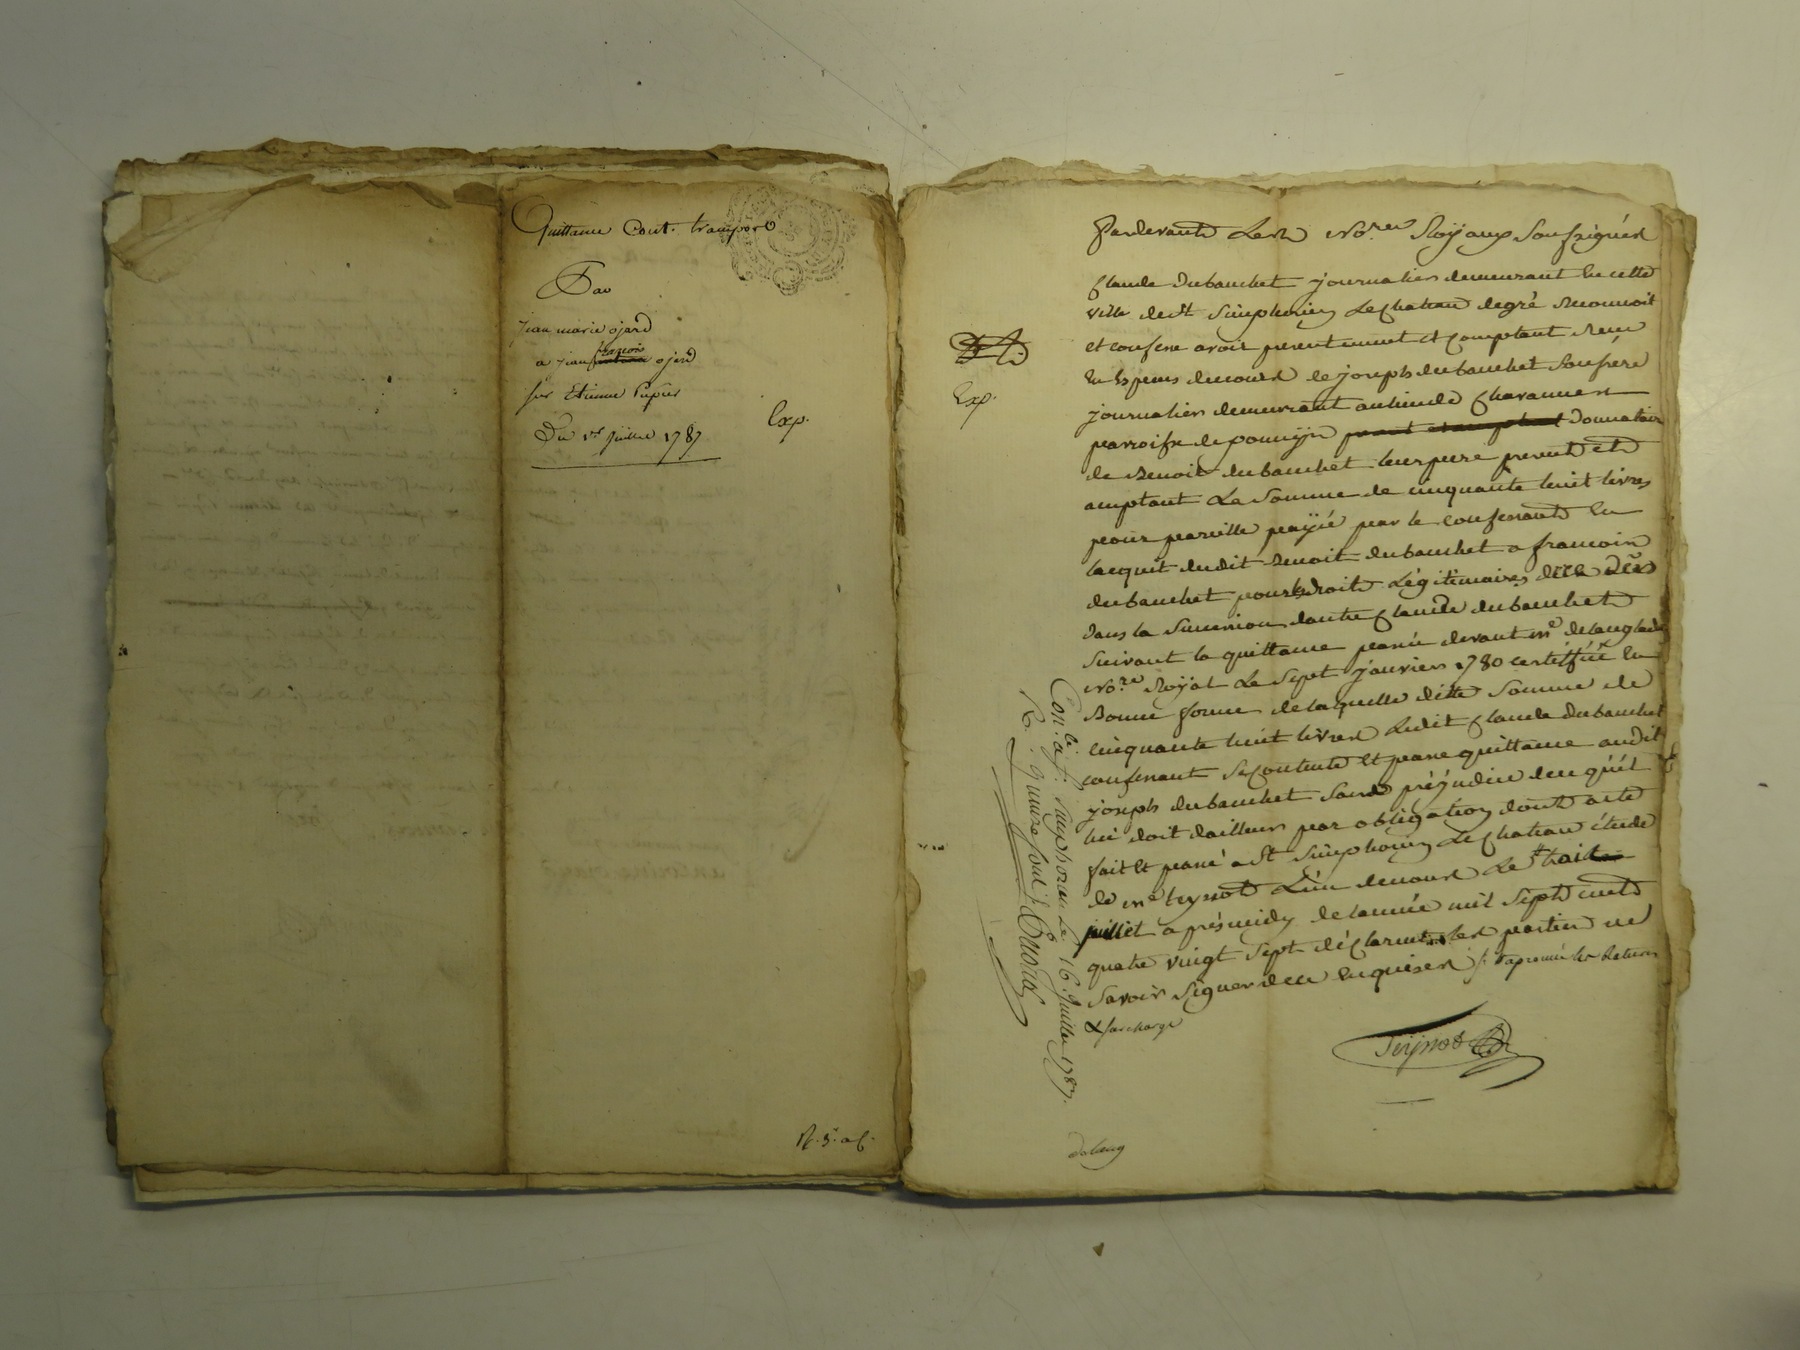 Quittance Cont. transport
Par
jean marie ojard
a jean françois ojard
sur Etienne Papier
Du 1er juillet 1787
Exp.
Exp.
Pardevant Les No.res Royaux Soussignés
Claude dubanchet journalier demeurant en cette
ville de st Simphorien Le Chateau degré reconnoit
et confesse avoir presentement et comptant reçu
en Especes de cours de joseph dubanchet son frere
journalier demeurant au lieu de Chavannes
parroisse de pomeys donnataire
de Benoit dubanchet leur pere present et
acceptant La Somme de cinquante huit livres
pour pareille payée par le confessant en
lacquit dudit Benoit dubanchet a francois
dubanchet pour droits Légitimaires
dans la Succession dautre Claude dubanchet
suivant la quittance passée devant me delanglade
No.re Royal Le Sept janvier 1780 en
Bonne forme de laquelle ditte Somme de
cinquante huit livres Ledit Claude dubanchet
confessant se contente et passe quittance audit
joseph dubanchet sans préjudice de ce qu'il
lui doit dailleurs par obligation dont acte
fait et passé a St Simphorien Le Chateau étude
de me teyssot L'un de nous Le huit
juillet après midy de l'année mil Sept cents
quatre vingt Sept déclarent les parties ne
Savoir Signer de ce Enquises /. approuvé les Ratures
& surcharge
Teyssot
Con.lé a St. Simphorien Le 16 Juillet 1787.
R. quinze sous